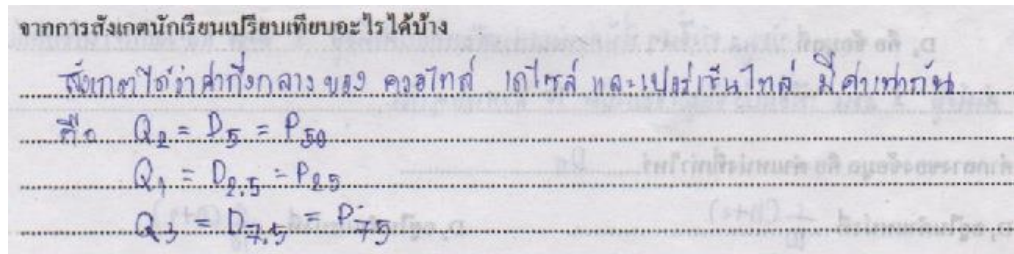 จากการสังเกตนักเรียนเปรียบเทียบอะไรได้บ้าง
สังเกตได้ว่าค่ากึ่งกลางของ ควอไทล์ เดไซล์ และเปอร์เซ็นไทล์ มีค่าเท่ากัน
คือ Q₂ = D₅ = P₅₀
Q₁ = D₂.₅ = P₂₅
Q₃ = D₇.₅ = P₇₅